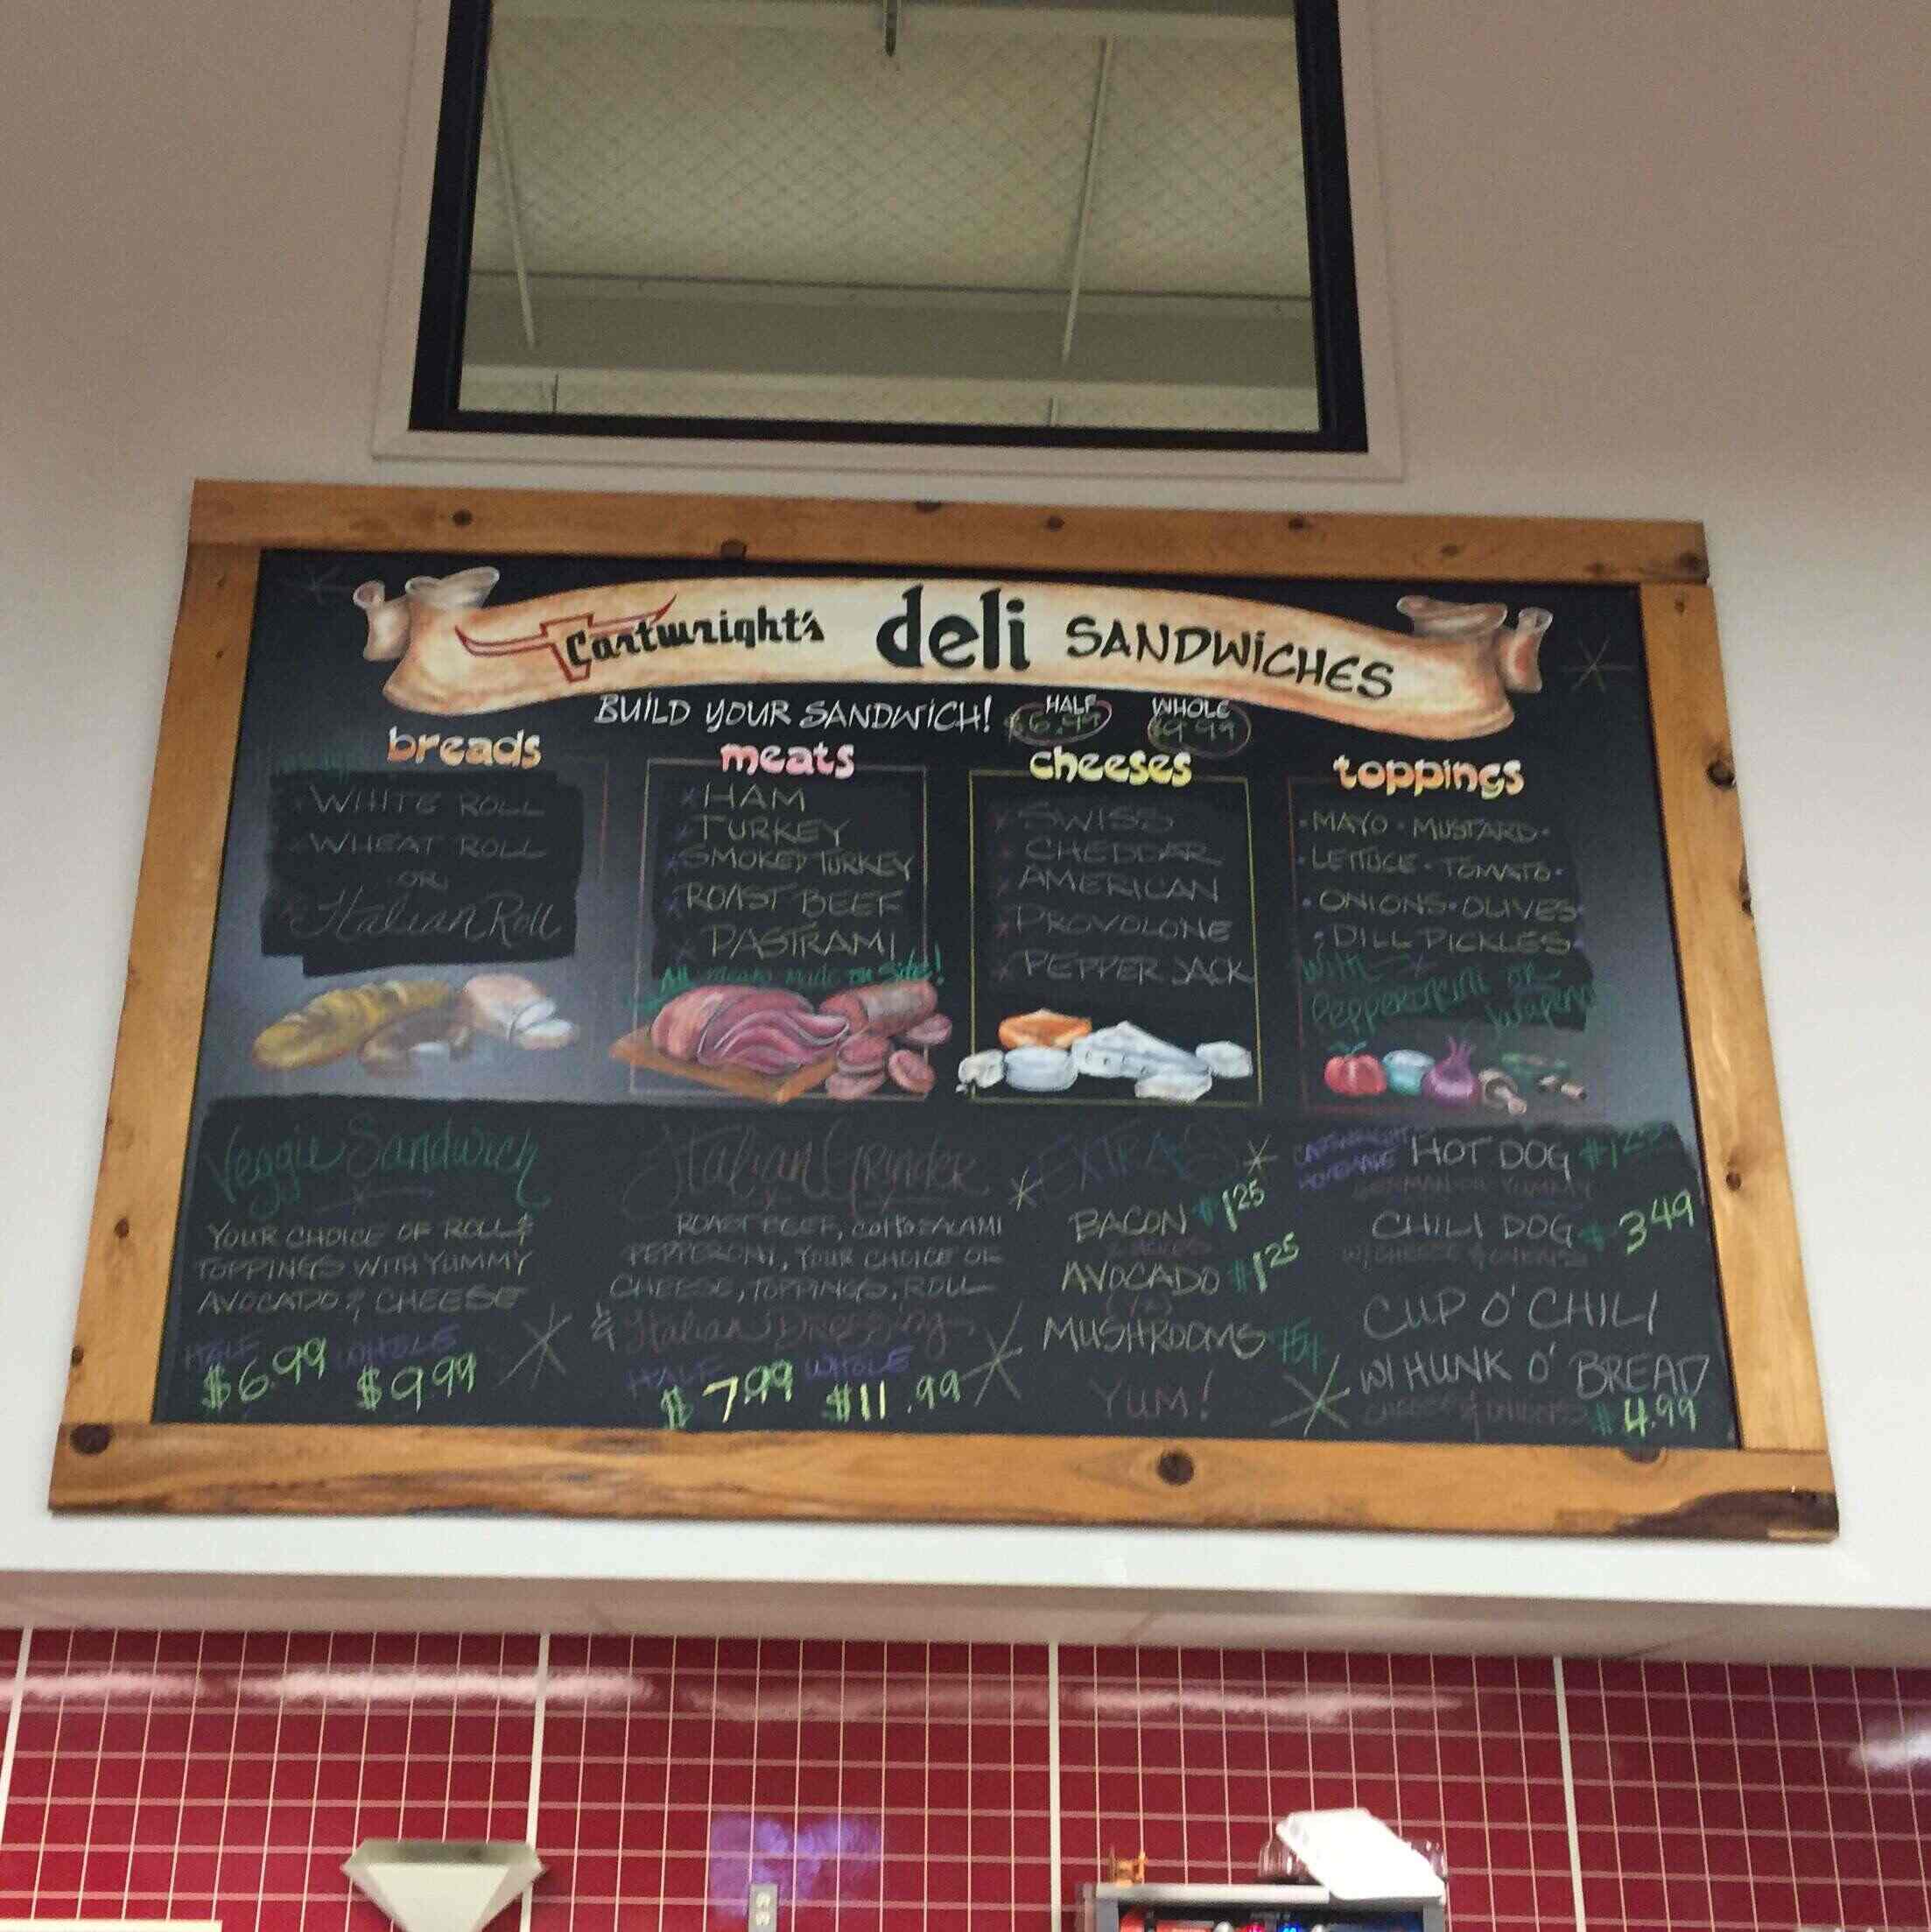 Cartwright's deli SANDWICHES
BUILD YOUR SANDWICH! HALF $6.99 WHOLE $9.99
breads
WHITE ROLL
WHEAT ROLL
OR
Italian Roll
meats
HAM
TURKEY
SMOKED TURKEY
ROAST BEEF
PASTRAMI
All meats made on site!
cheeses
SWISS
CHEDDAR
AMERICAN
PROVOLONE
PEPPER JACK
toppings
• MAYO • MUSTARD •
• LETTUCE • TOMATO •
• ONIONS • OLIVES •
• DILL PICKLES •
with
Pepperoncini or
Jalapeno
Veggie Sandwich
YOUR CHOICE OF ROLL &
TOPPINGS WITH YUMMY
AVOCADO & CHEESE
HALF WHOLE
$6.99 $9.99
Italian Grinder
ROAST BEEF, Cotto SALAMI
PEPPERONI, YOUR CHOICE OF
CHEESE, TOPPINGS, ROLL
& Italian Dressing
HALF WHOLE
$7.99 $11.99
EXTRAS
BACON $1.25
AVOCADO $1.25
MUSHROOMS
YUM!
CARTWRIGHT'S
HOMEMADE HOT DOG
GERMAN OR YUMMY
CHILI DOG $3.49
W/ CHEESE & ONIONS
CUP O' CHILI
W/ HUNK O' BREAD
CHEESE & ONIONS $4.99